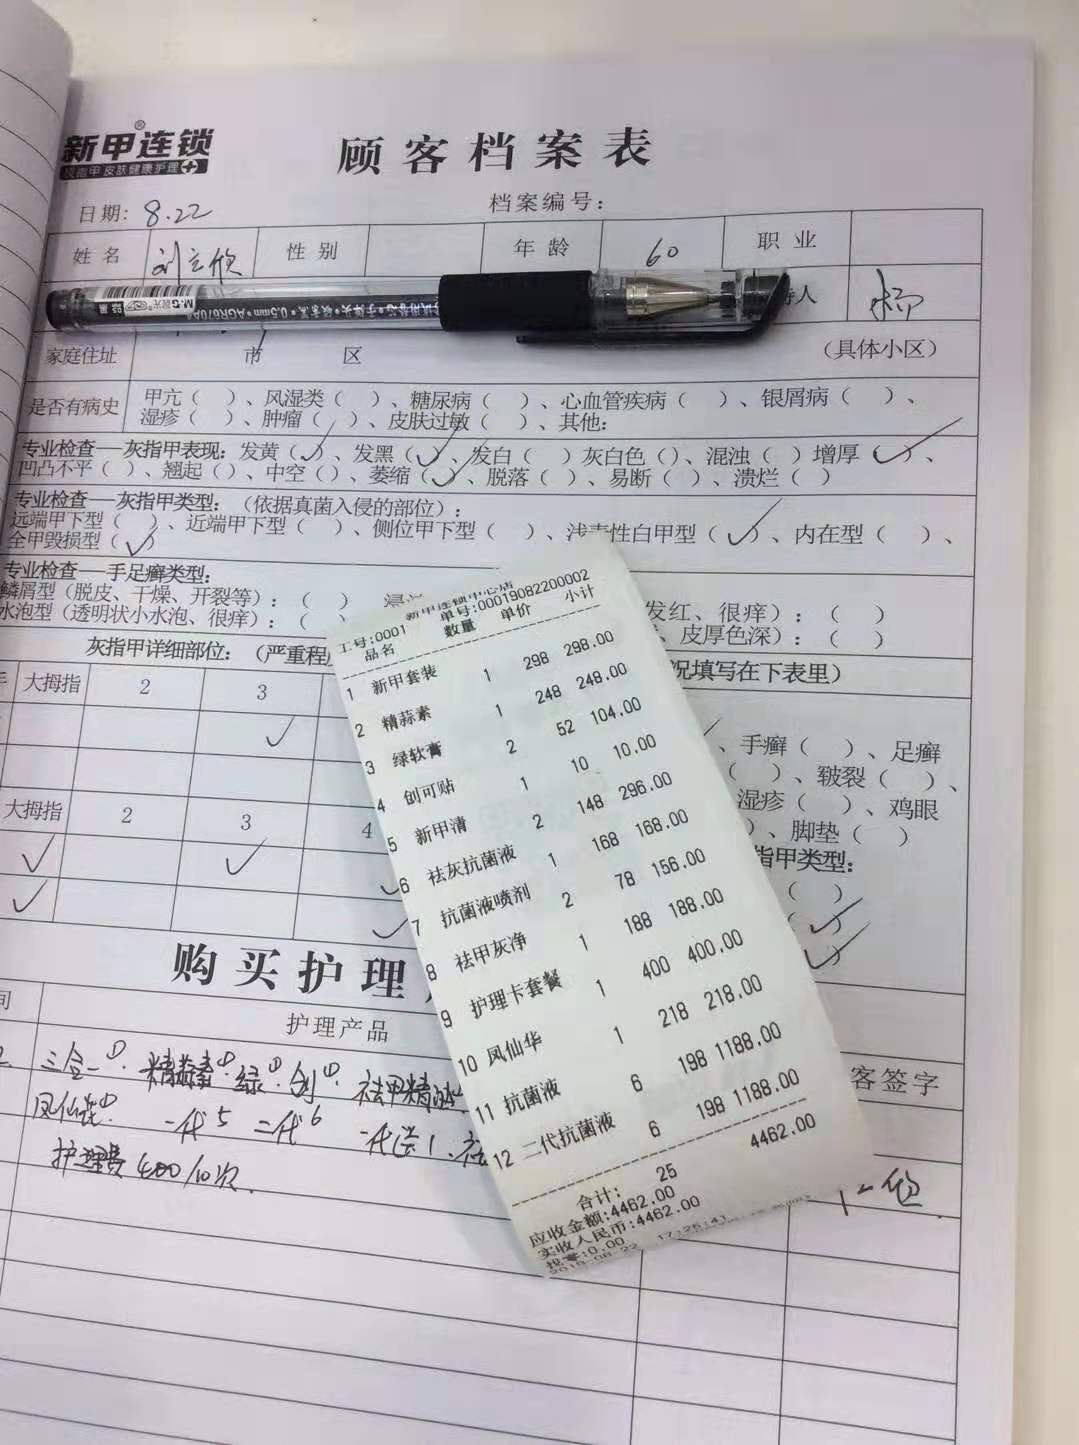 新甲®连锁
灰指甲 皮肤健康护理
顾客档案表
日期: 8.22
档案编号:
姓名
性别
年龄 60 职业
家庭住址 市 区 (具体小区)
是否有病史 甲亢( )、风湿类( )、糖尿病( )、心血管疾病( )、银屑病( )、
湿疹( )、肿瘤( )、皮肤过敏( )、其他:
专业检查—灰指甲表现: 发黄(✓)、发黑(✓)、发白( )灰白色()、混浊( )增厚(✓)、
凹凸不平( )、翘起()、中空()、萎缩(✓)、脱落( )、易断( )、溃烂( )
专业检查—灰指甲类型: (依据真菌入侵的部位):
远端甲下型( )、近端甲下型( )、侧位甲下型( )、浅表性白甲型(✓)、内在型( )、
全甲毁损型(✓)
专业检查—手足癣类型:
鳞屑型(脱皮、干燥、开裂等): ( )
发红、很痒): ( )
水泡型(透明状小水泡、很痒): ( )
皮厚色深): ( )
灰指甲详细部位: (严重程
况填写在下表里)
大拇指 2 3
手癣( )、足癣
( )、皲裂( )、
大拇指 2 3 4
湿疹( )、鸡眼
、脚垫( )
指甲类型:
购买护理
护理产品
客签字
护理费 400/10次.
新甲连锁中心店
工号:0001 单号:00019082200002
品名 数量 单价 小计
1 新甲套装 1 298 298.00
2 精蒜素 1 248 248.00
3 绿软膏 2 52 104.00
4 创可贴 1 10 10.00
5 新甲清 2 148 296.00
6 祛灰抗菌液 1 168 168.00
7 抗菌液喷剂 2 78 156.00
8 祛甲灰净 1 188 188.00
9 护理卡套餐 1 400 400.00
10 凤仙华 1 218 218.00
11 抗菌液 6 198 1188.00
12 二代抗菌液 6 198 1188.00
合计: 25 4462.00
应收金额:4462.00
实收人民币:4462.00
找零:0.00
2019-08-22 17:25:41